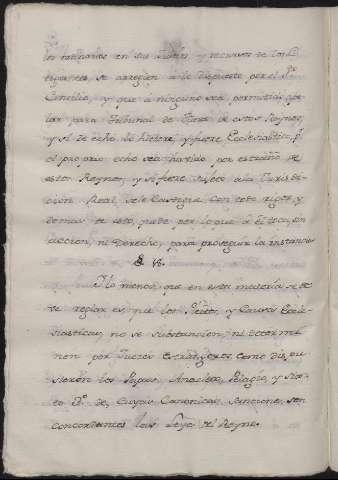 los ordinarios en sus Autos, y recursos de los Li-
tigantes se arreglen à lo dispuesto por el Sto.
Concilio, y que à ninguno sea permitido ape-
lar para Tribunal de fuera de estos Reynos,
y si de echo lo hiciere, y fuere Ecclesiastico, pr.
el proprio echo sea havido por estraño de
estos Reynos, y si fuere sujeto ala Jurisdi-
cion Real, se le Castigue con todo rigor, y
demas de esto, quede por lo que à él toca, sin
accion, ni Derecho, para proseguir la instancia
§. 18.
No lo menos, que en esta materia se de-
ve reglar es, que los Pleitos, y Causas Ecle-
siasticas, no se substancien, ni determi-
nen por Jueces Estrangeros, como dis-
pusieron los Papas, Anacleto, Pelagio, y Six-
to 3º. de Cuyas Canonicas Sanciones son
concordantes las Leyes del Reyno.